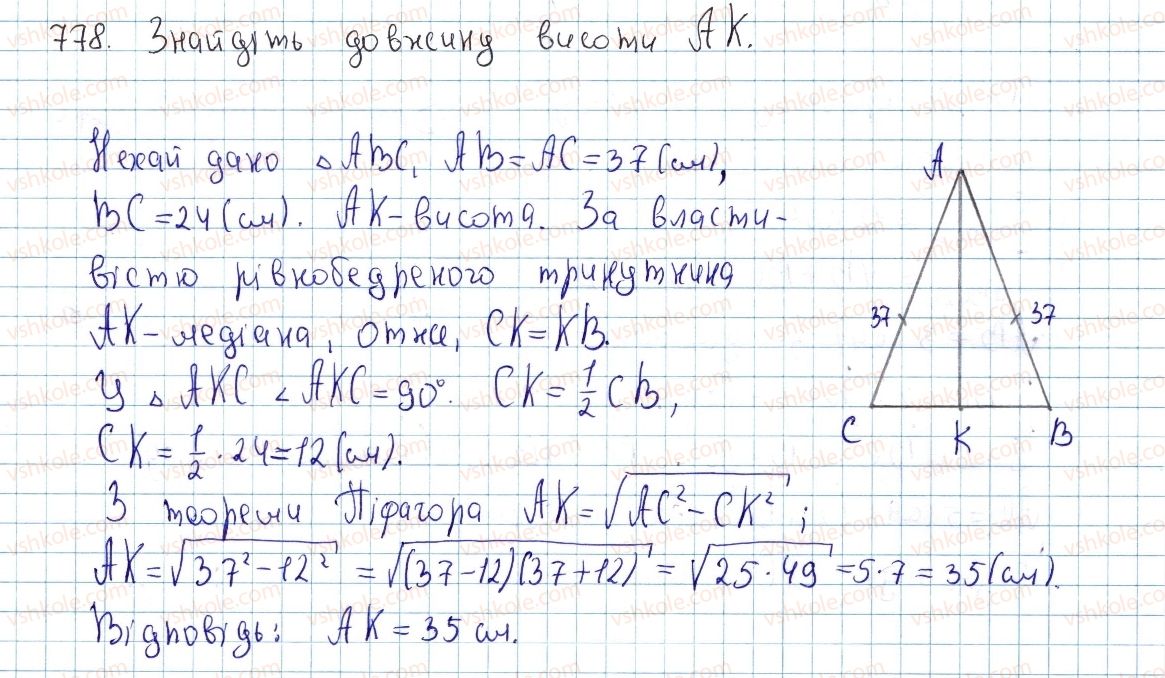 778. Знайдіть довжину висоти АК.
Нехай дано △ABC, AB = AC = 37 (см),
BC = 24 (см). AK – висота. За власти-
вістю рівнобедреного трикутника
AK – медіана, отже, CK = KB.
У △ AKC ∠ AKC = 90°. CK = 1/2 CB,
CK = 1/2 · 24 = 12 (см).
З теореми Піфагора AK = √(AC² – CK²) ;
AK = √(37² – 12²) = √((37 – 12)(37 + 12)) = √(25 · 49) = 5 · 7 = 35 (см).
Відповідь: AK = 35 см.
A
37 37
C K B
vshkole.com